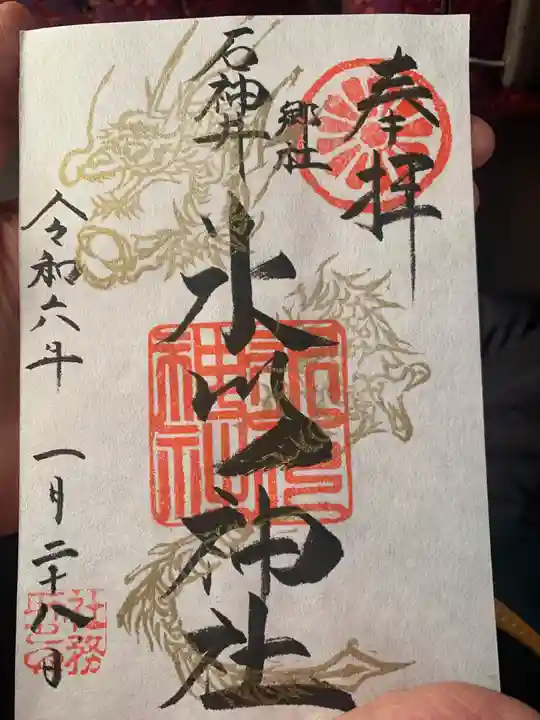 奉拝
郷社
石神井
氷川神社
令和六年 一月二十八日
社務所印